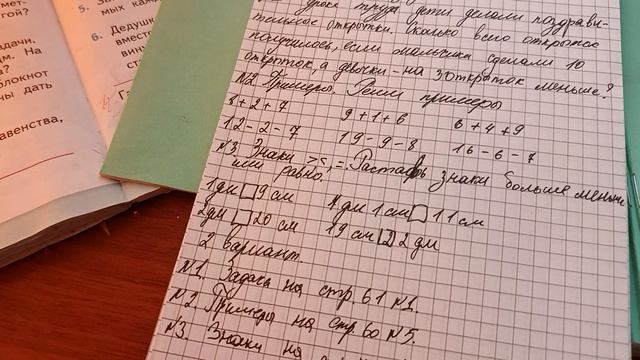 мет-
гой?
адачи.
м. На
а?
блокнот
ны дать
авенства,
мых
5. За
6. Дедушк
вмест
вин
ст
уроке труда дети делали поздрави-
тельное открытки. Сколько всего открыток
получилось, если мальчики сделали 10
откроток, а девочки - на 3 откроток меньше?
N2 Примеры. Реши примеры
8+2+7 9+1+6 6+4+9
12-2-7 19-9-8 16-6-7
N3 Знаки >,<,=. Расставь знаки больше меньше
или равно.
1дм□9см 1дм 1см□11см
2дм□20см 19см□2дм
2 вариант.
N1. Задача на стр. 61 N1.
N2 Примеры на стр. 60 N5.
N3. Знаки на